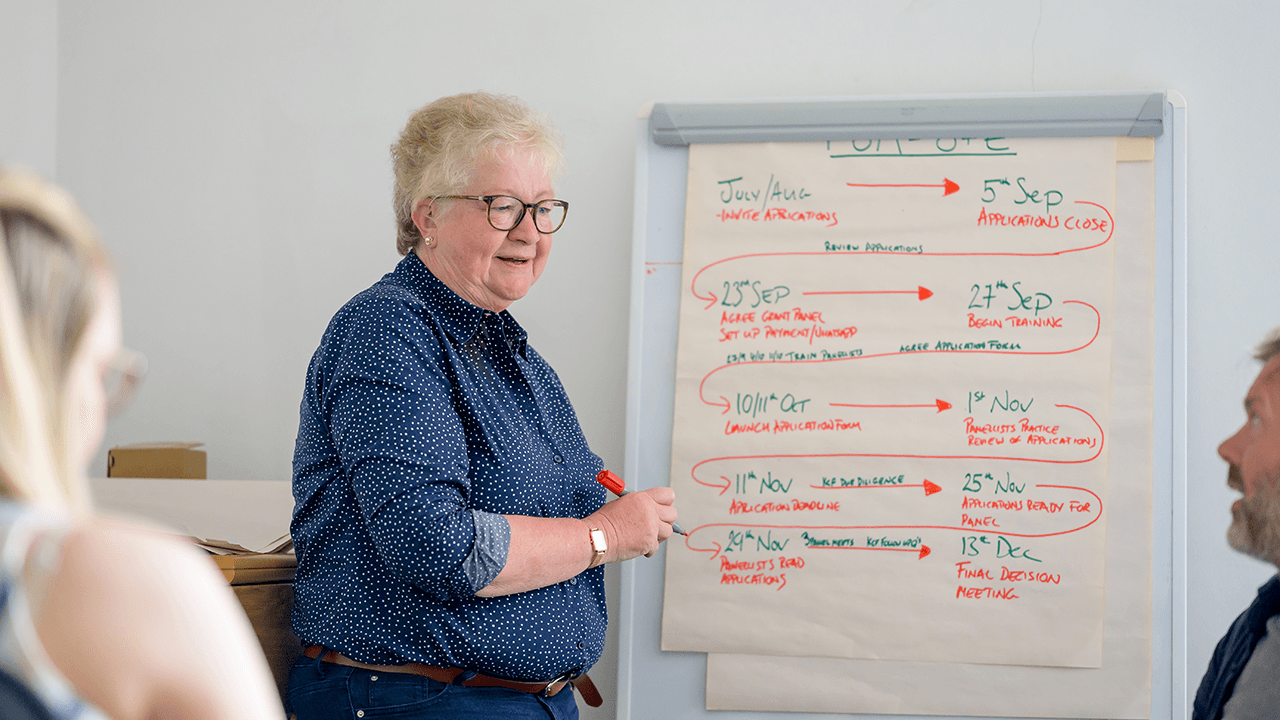 July/Aug
- Invite Applications
5th Sep
Applications Close
Review Applications
23rd Sep
Agree Grant Panel
Set up Payment/Whatsapp
27th Sep
Begin Training
Train Panelists
Agree Application Form
10/11th Oct
Launch Application Form
1st Nov
Panelists Practice
Review of Applications
11th Nov
Aplication Deadline
KCF Due Diligence
25th Nov
Applications Ready For
Panel
29th Nov
Panelists Read
Applications
KCF Follow
13th Dec
Final Decision
Meeting